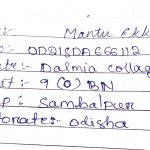 :- Mantu Ekk
o:- OD21SDA666112
te:- Dalmia Collag
it :- 9 (O) BN
p:- Sambalpur
torate:- Odisha